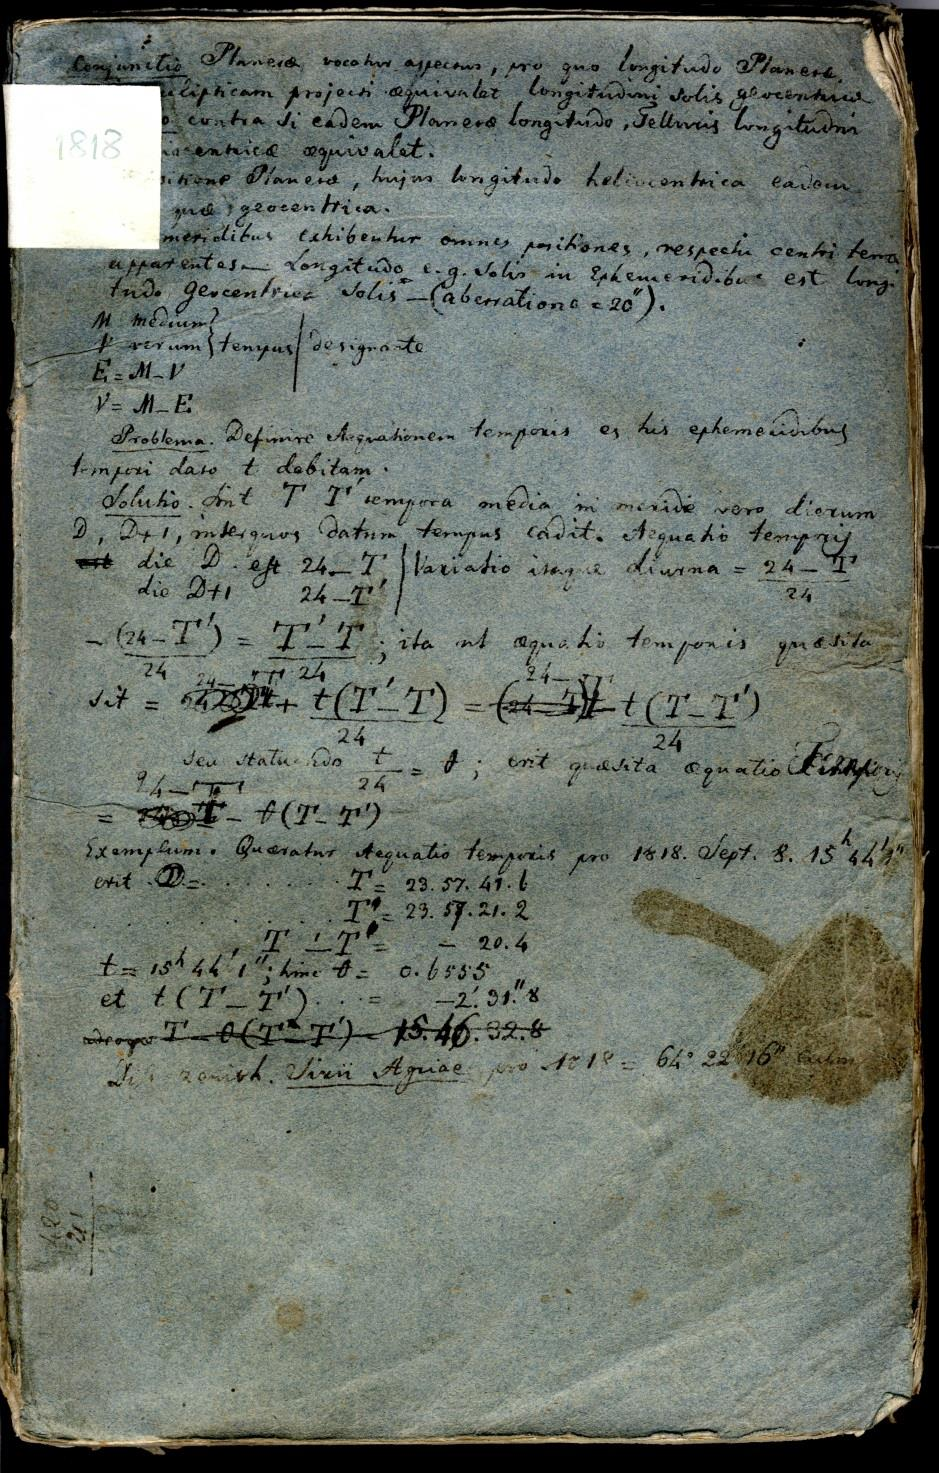 Conjunctio Planetæ vocatur aspectus, pro quo longitudo Planetæ
eclipticam projecti æquivalet longitudini Solis geocentricæ
1818
contra si eadem Planetæ longitudo, Telluris longitudini
æquivalet.
Planetæ, hujus longitudo heliocentrica eadem
quæ geocentrica.
exhibentur omnes positiones, respectu centri terræ
apparentes — Longitudo e. g. Solis in Ephemeridibus est longi-
tudo Geocentrica Solis — (aberratione = 20").
M medium
V verum } tempus | designante
E = M – V
V = M – E
Problema. Definire Aequationem temporis ex his ephemeridibus
tempori dato t debitam.
Solutio. Sint T T' tempora media in meridie vero dierum
D, D+1, inter quos datum tempus cadit. Aequatio temporis
est die D est 24 – T | Variatio itaque diurna = 24 – T / 24
die D+1 24 – T'
– (24 – T') / 24 = T' – T / 24 ; ita ut æquatio temporis quæsita
sit = 24 – T + t (T' – T) / 24 = 24 – T – t (T – T') / 24
seu statuendo t / 24 = θ ; erit quæsita æquatio temporis
= 24 – T – θ (T – T')
Exemplum. Quæratur Aequatio temporis pro 1818. Sept. 8. 15h 44' 1"
erit D = T = 23. 57. 41. 6
T' = 23. 57. 21. 2
T' – T = – 20. 4
t = 15h 44' 1" ; hinc θ = 0. 6555
et t (T – T') . . . = – 2'. 31". 8
T – θ (T – T') = 15. 46. 32. 8
zenith. Sirii pro 1818 = 64° 22' 16"
480
21